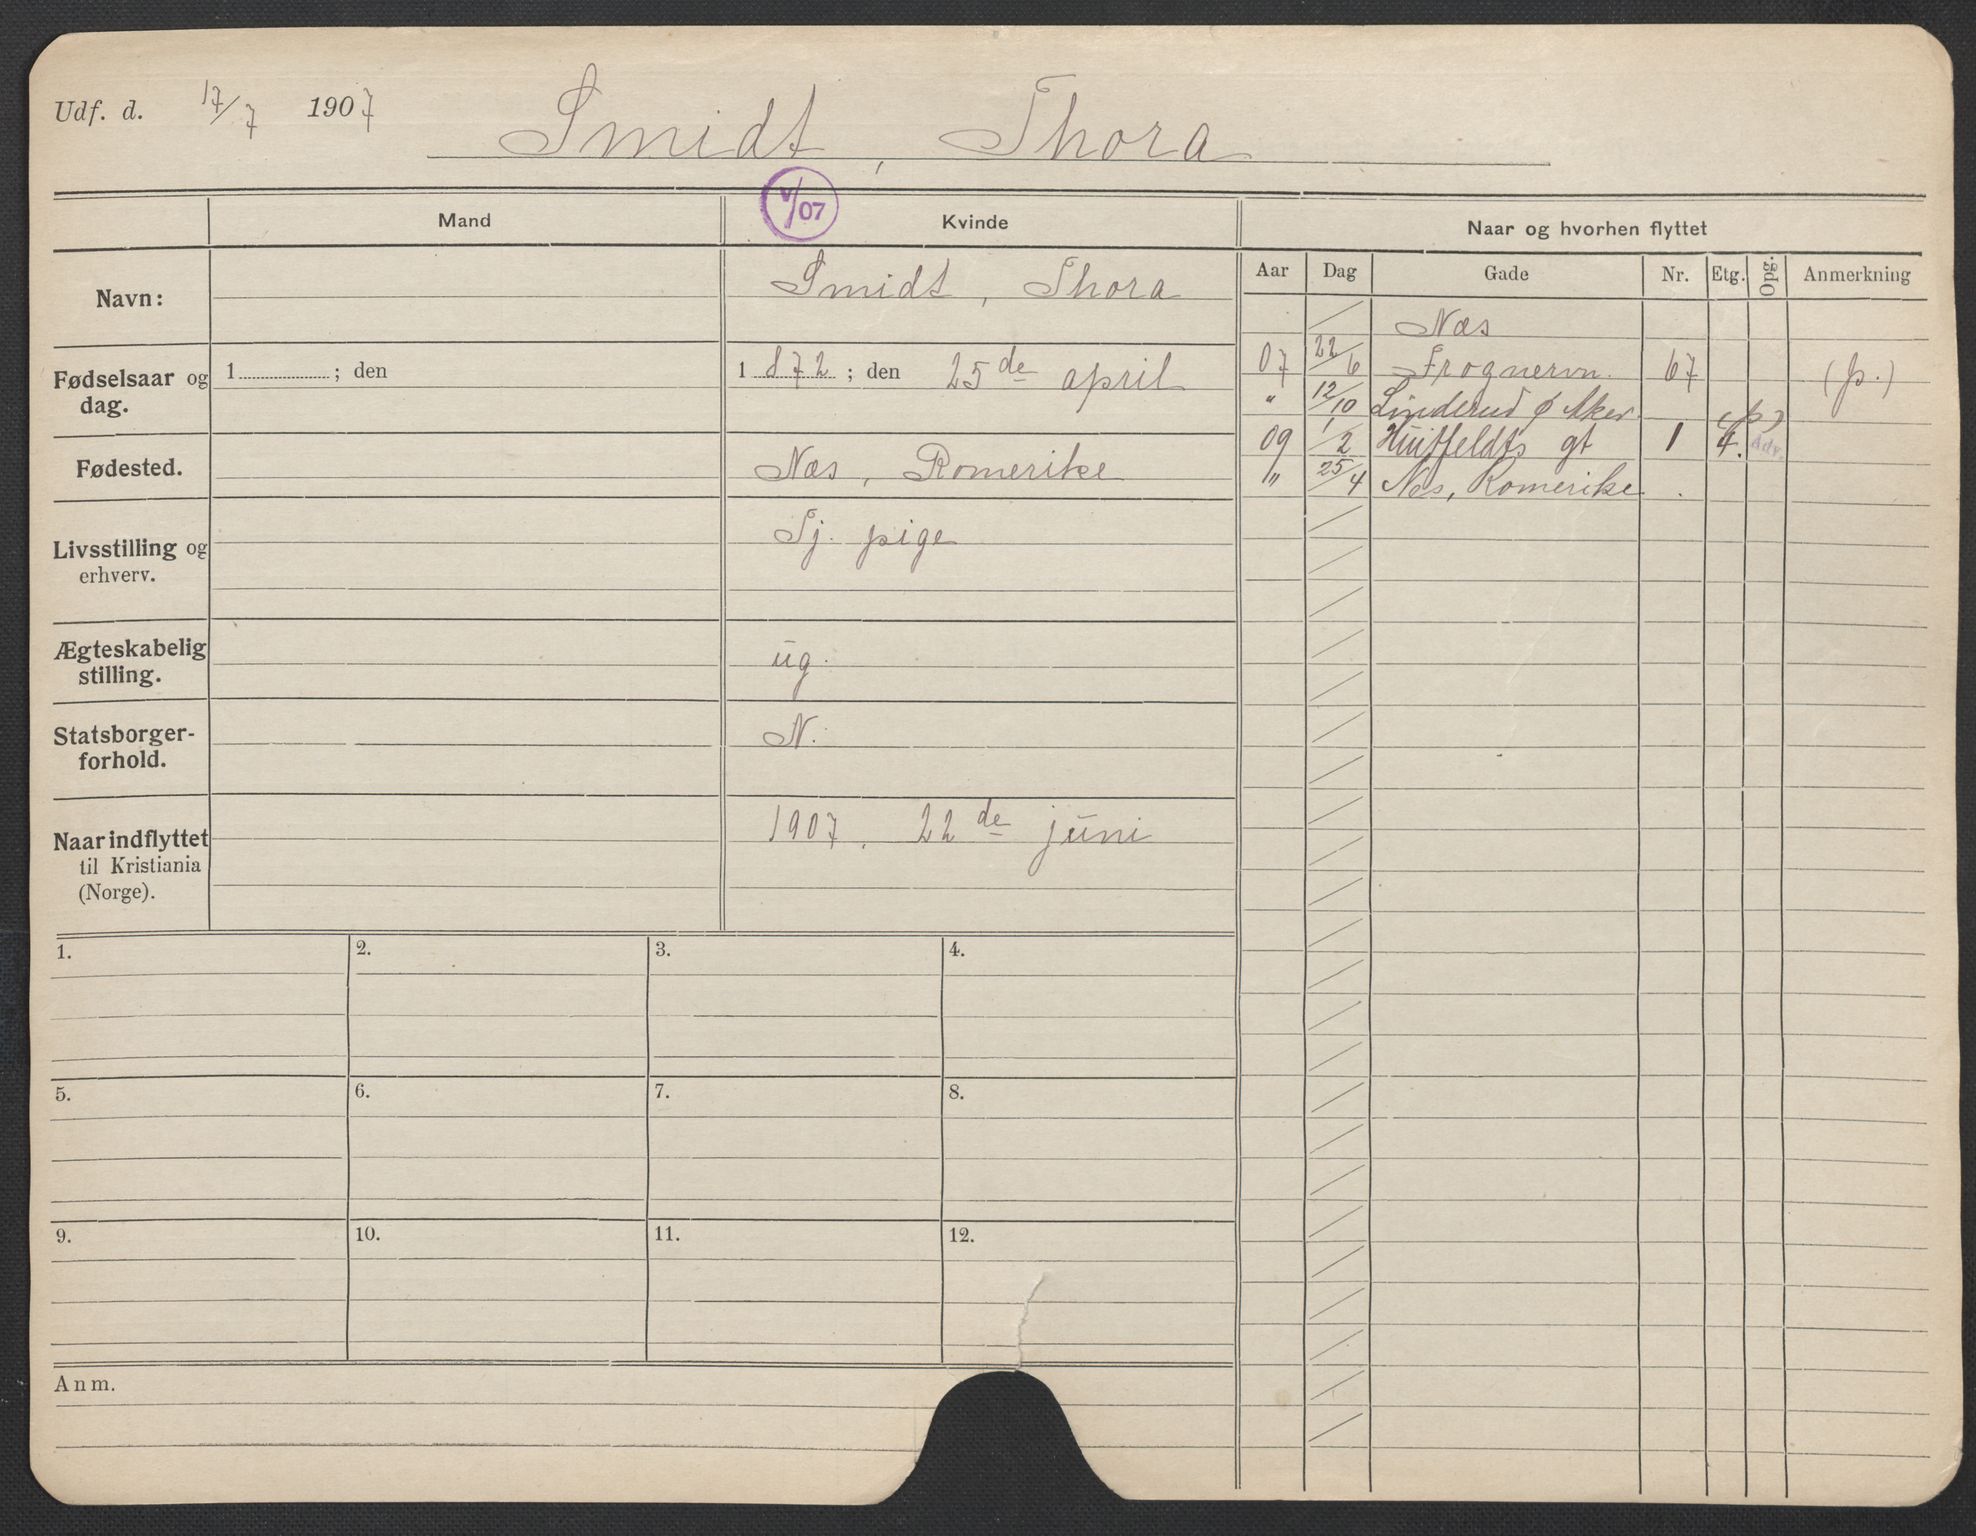 Udf. d. 17/7 1907
Smidt, Thora
V/07
Mand Kvinde Naar og hvorhen flyttet
Aar Dag Gade Nr. Etg. Opg. Anmerkning
Navn: Smidt, Thora
Fødselsaar og dag. 1 ; den 1 872 ; den 25de april
Fødested. Næs, Romerike
Livsstilling og erhverv. Sj. pige
Ægteskabelig stilling. ug.
Statsborgerforhold. N.
Naar indflyttet til Kristiania (Norge). 1907, 22de juni
Næs
07 22/6 Frognervn. 67 (p.)
" 12/10 Linderud Ø Aker (p)
09 1/2 Huitfeldts gt 1 4. Adv.
" 25/4 Næs, Romerike.
1. 2. 3. 4.
5. 6. 7. 8.
9. 10. 11. 12.
Anm.